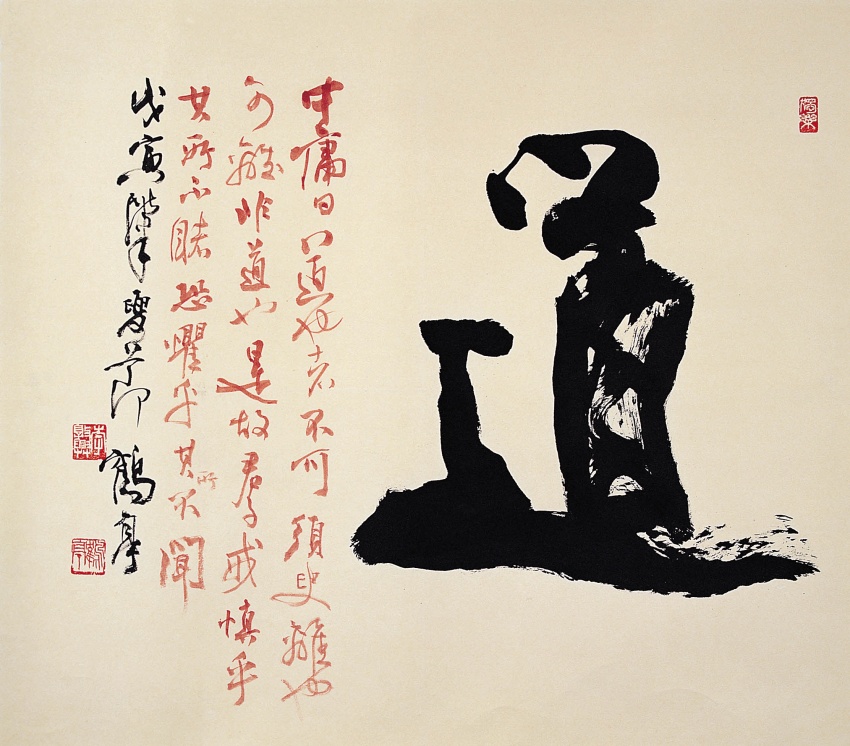 道
中庸曰道也者不可須臾離也
可離非道也是故君子戒慎乎
其所不睹恐懼乎其所不聞
戊寅 節 鶴亭
鶴亭